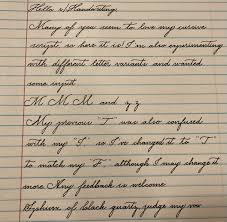 Hello r/Handwriting
Many of you seem to love my cursive
script, so here it is! I'm also experimenting
with different letter variants and wanted
some input
M M M and y z
My previous "T" was also confused
with my "F", so I've changed it to "T"
to match my "F" although I may change it
more Any feedback is welcome
Sphinx of black quartz judge my vow